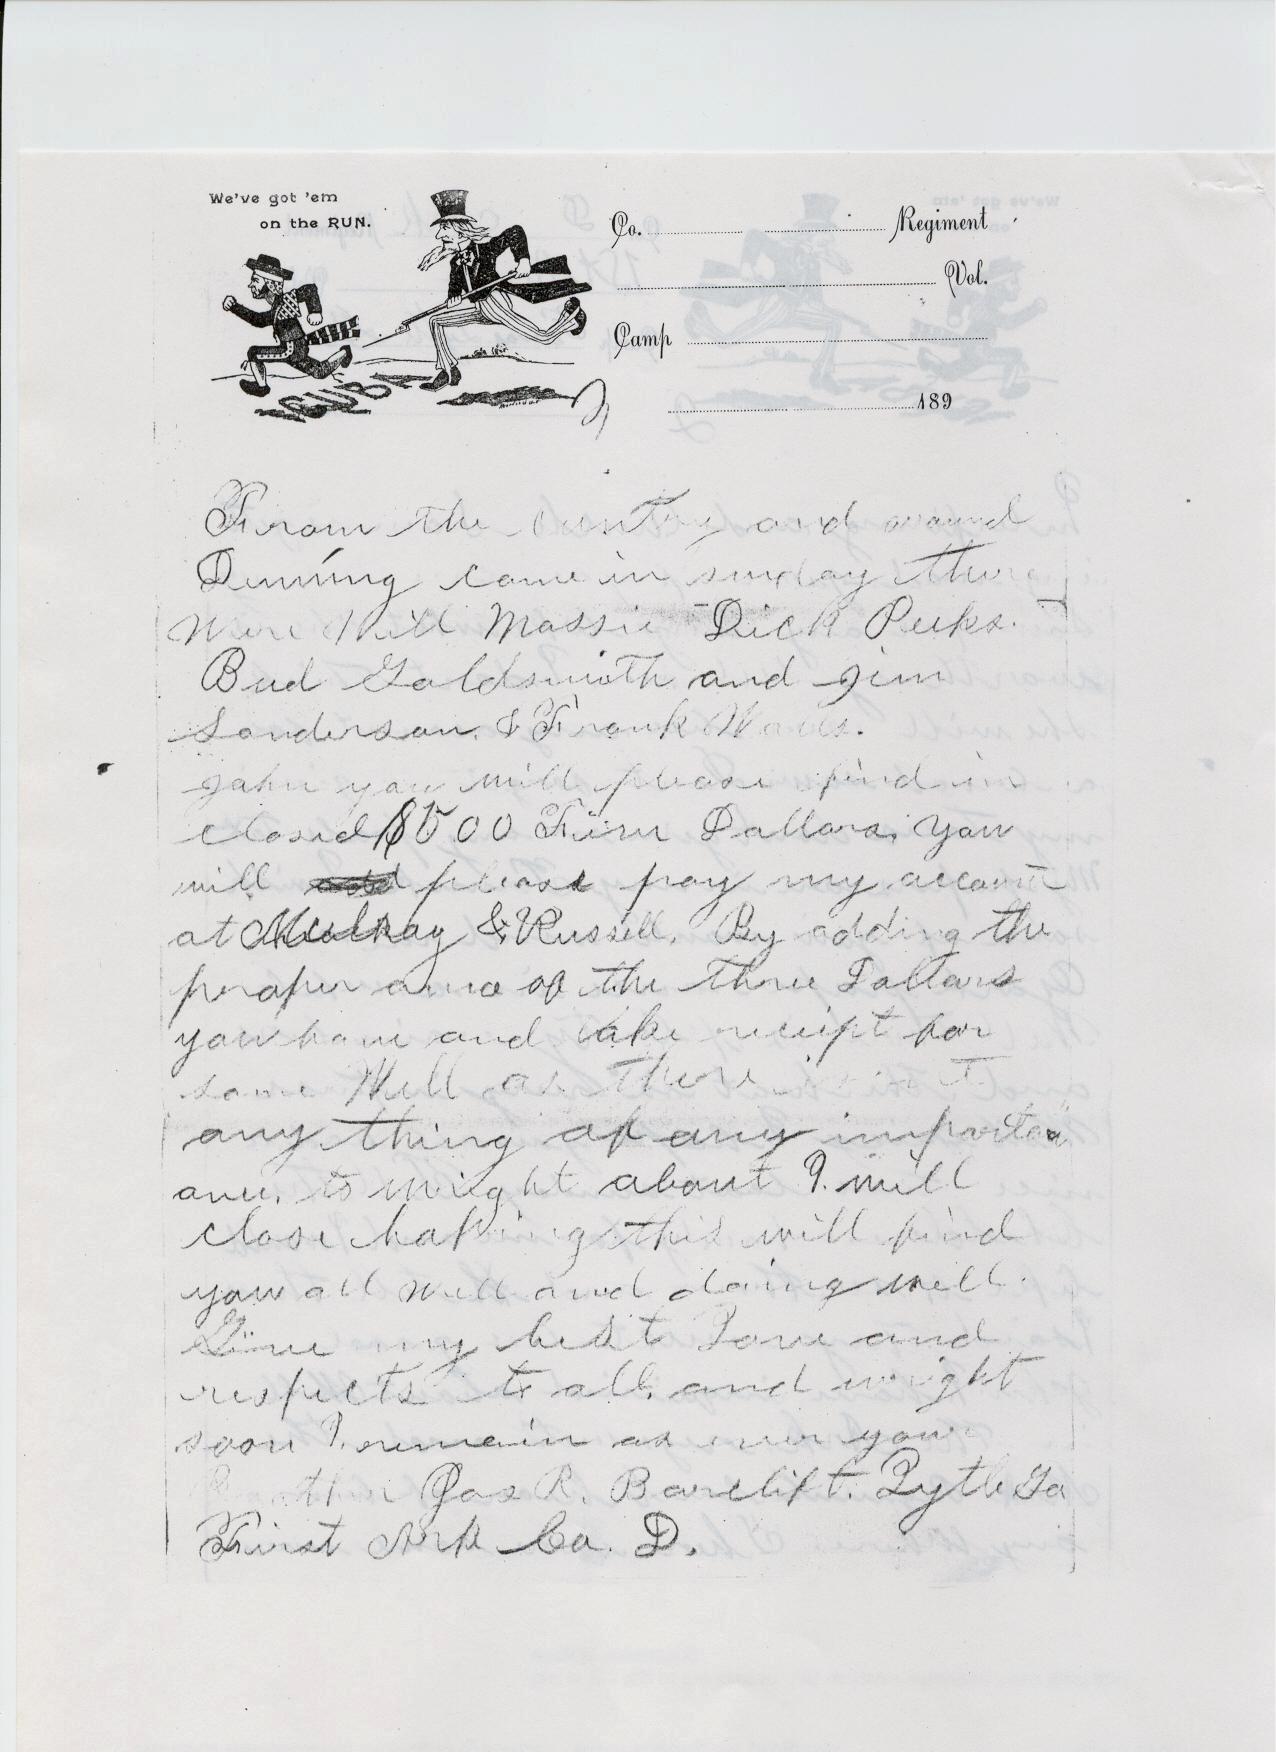 We've got 'em
on the RUN.
Co. Regiment
Vol.
Camp
CUBA
189
From the and around
Denning come in sunday there
were Will Massie Dick Peeks.
Bud Goldsmith and Jim
Sanderson. & Frank Wades.
John you will please find in
closed $500 Five Dollars, you
will please pay my account
at & Russell. By adding the
proper of the three Dollars
you have and take receipt for
same Well as there
any thing of any importan
ance. to wright about I will
close hopping this will find
you all well and doing well.
Give my best Love and
respects to all, and wright
soon I remain as ever your
Brother Jas R. Barclift. Lytle Ga
First Ark Co. D.